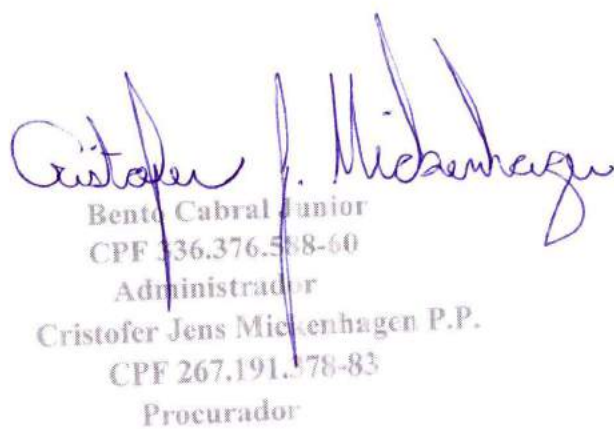 Cristofer J. Mickenhagen
Bento Cabral Junior
CPF 336.376.588-60
Administrador
Cristofer Jens Mickenhagen P.P.
CPF 267.191.378-83
Procurador